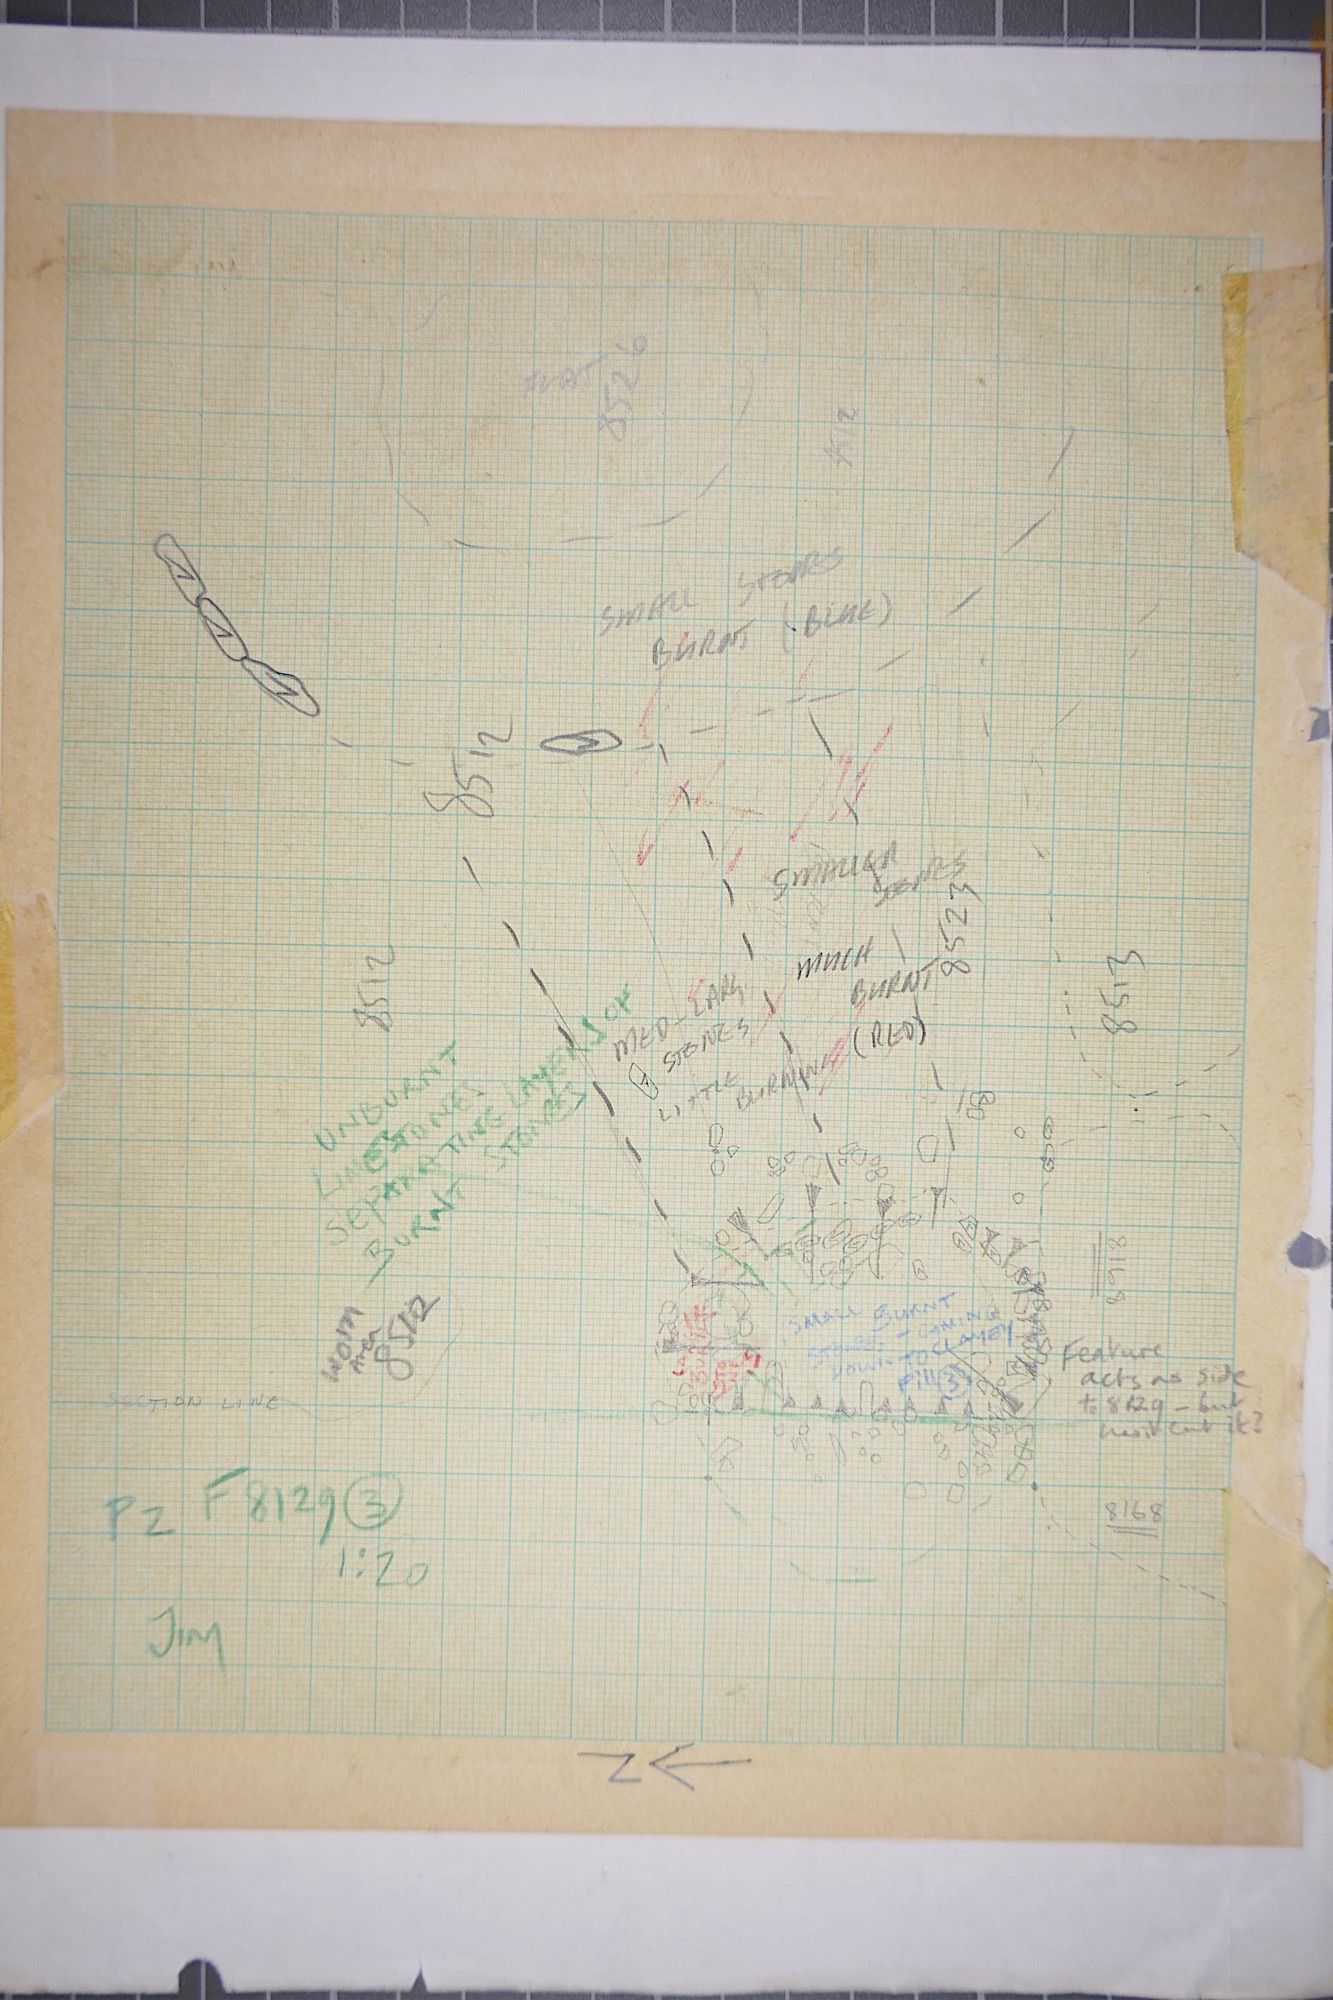 FLAT
8526
SMALL STONES
BURNT (BLUE)
8512
SMALLER
STONES
8523
MUCH
BURNT
(RED)
8512
8513
MED-LARG
STONES
LITTLE BURNING
UNBURNT
LIMESTONES
SEPARATING LAYERS OF
BURNT STONES
8512
8918
SMALL BURNT
STONES - COMING
DOWN TO CLAYEY
Fill (3)
Feature
acts as side
to 8129 - but
cut it?
SECTION LINE
P2 F8129 (3)
1:20
8168
JIM
N